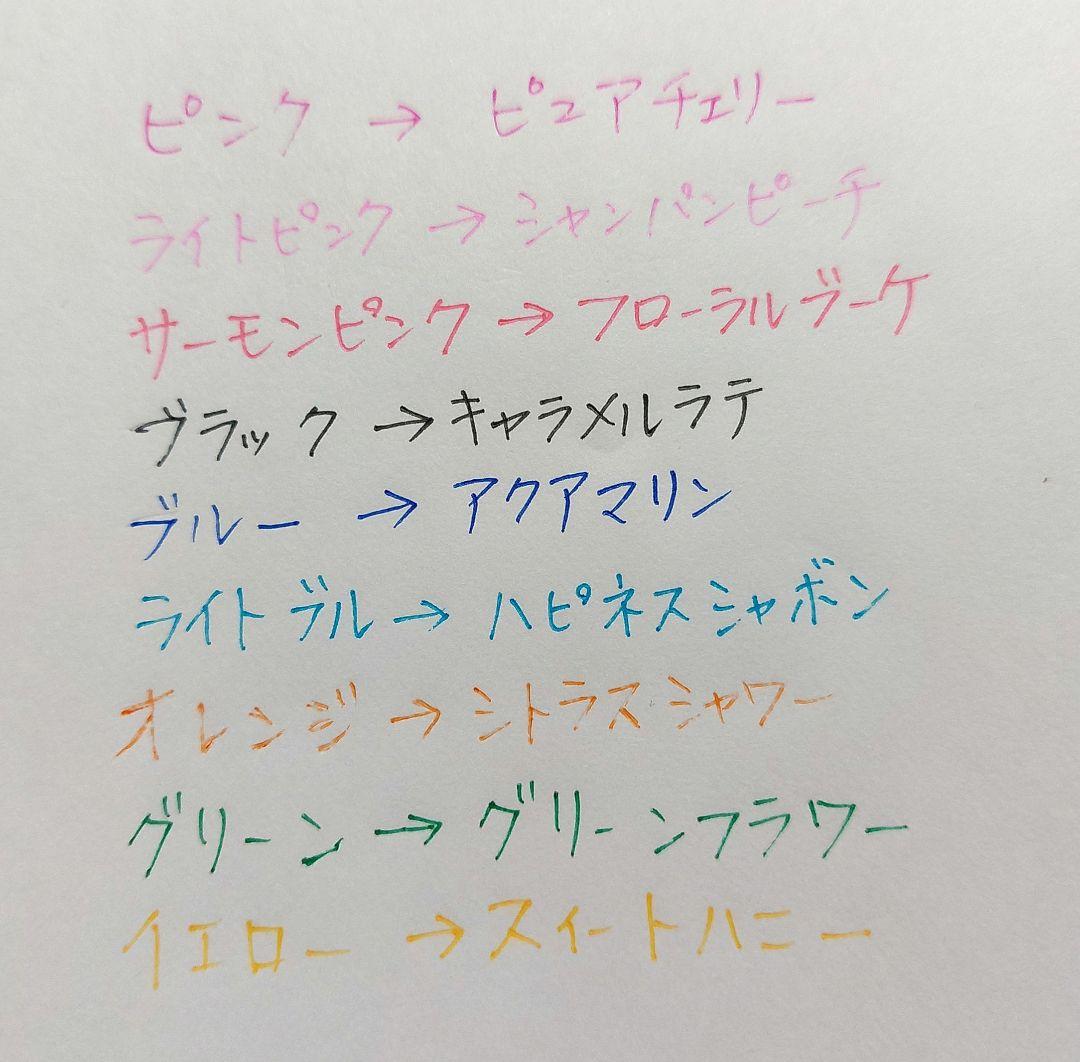 ピンク → ピュアチェリー
ライトピンク → シャンパンピーチ
サーモンピンク → フローラルブーケ
ブラック → キャラメルラテ
ブルー → アクアマリン
ライトブル → ハピネスシャボン
オレンジ → シトラスシャワー
グリーン → グリーンフラワー
イエロー → スィートハニー